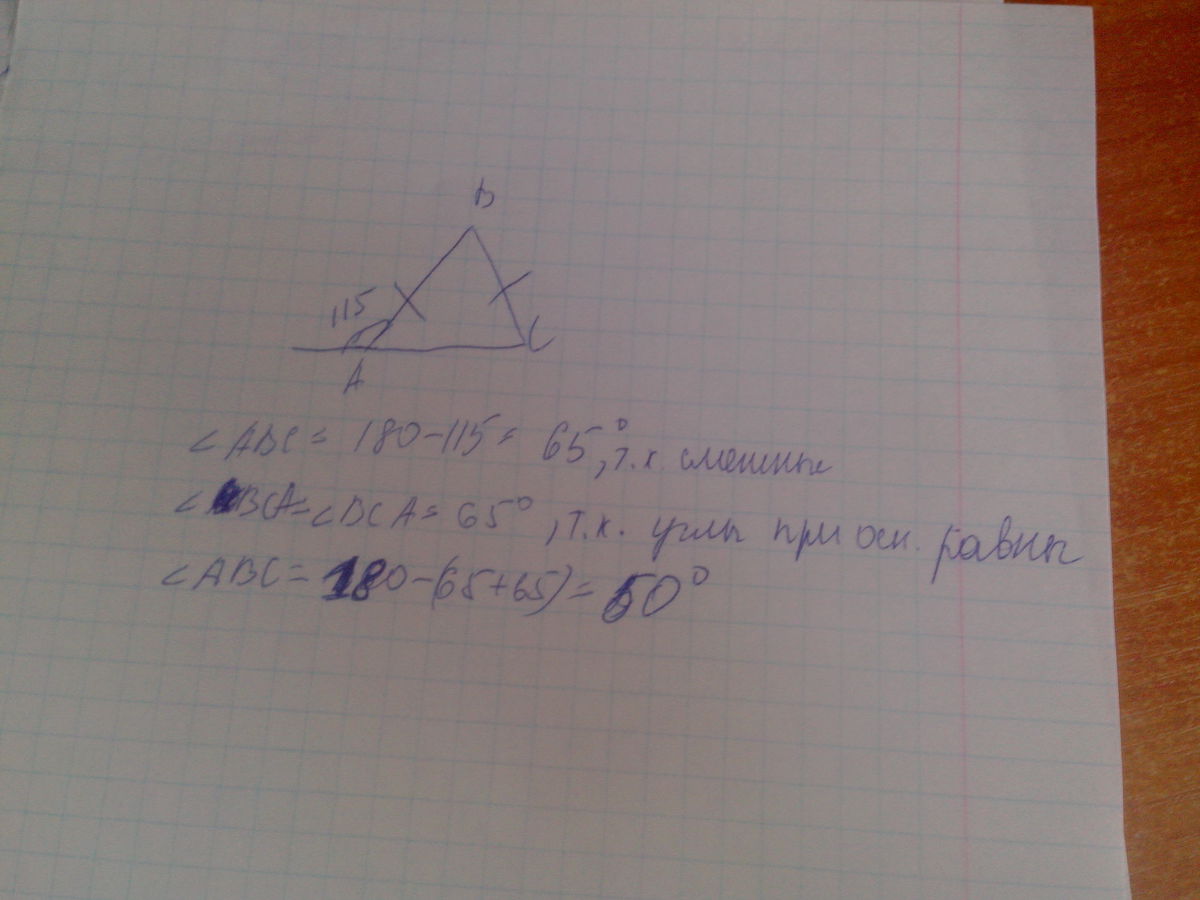 B
115
C
A
∠ABC = 180-115= 65°, т.к смежные
∠BCA=∠BCA= 65°, т.к. углы при осн. равны
∠ABC= 180-(65+65)= 50°